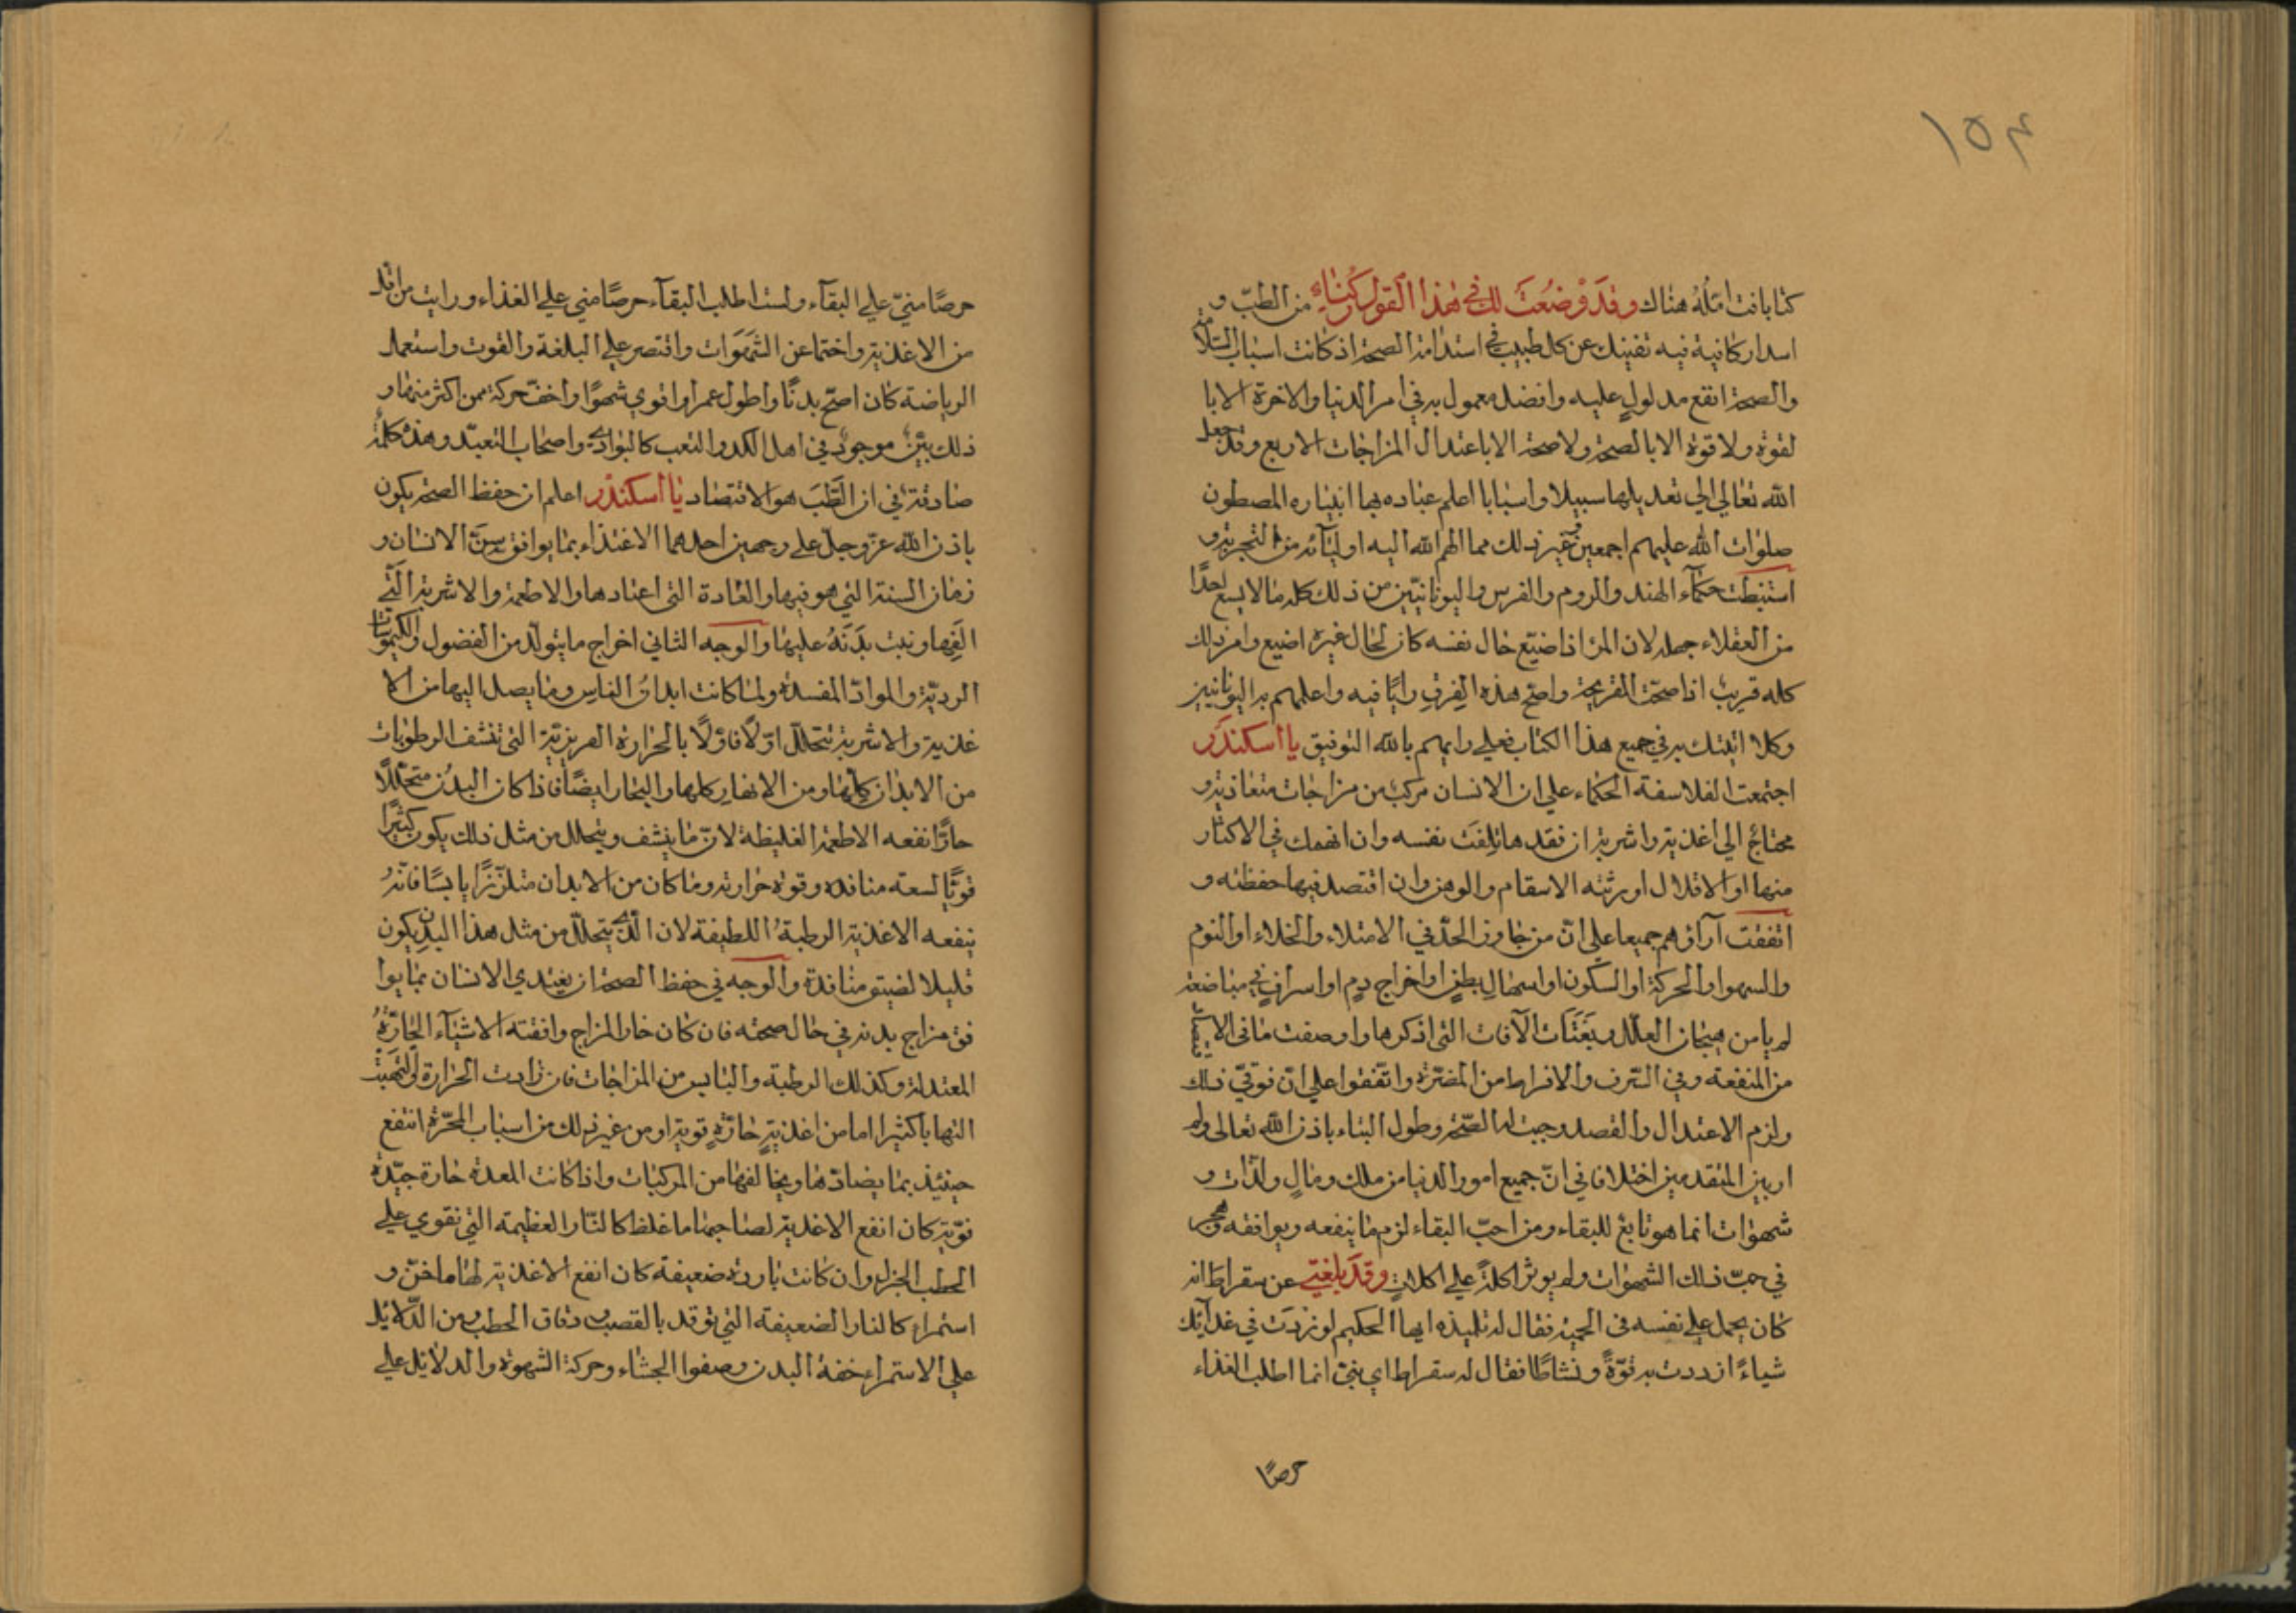 ١٥٤
كتابا نت امله هناك وقد وضعت لك في هذا القول كناء من الطبّ و
اسدار كافية فيه تغنيك عن كل طبيب في استدامة الصحة اذ كانت اسباب السلامة
والصحة انفع مدلول عليه وافضل معمول به في امر الدنيا والاخرة الابا
لقوة ولا قوة الا بالصحة ولا صحة الا باعتدال المزاجات الاربع وقد جعل
الله تعالي الي تعديلها سبيلا واسبابا اعلم عباده بها انبياره المصطون
صلوات الله عليهم اجمعين وغير ذلك مما الهم الله اليه اوليآئه من التجربة و
استنبطت حكمآء الهند والروم والفرس واليونانيّين من ذلك كله ما لا يسع احدًا
من العقلاء جهله لان المرٔ اذا ضيّع حال نفسه كان لحال غيره اضيع وامر ذلك
كله قريب اذا صحّت القريحة واصح هذه الفرق رايًا فيه واعلمهم به اليونانيين
وكلا اتيتك به في جميع هذا الكتاب فعلي رايهم بالله التوفيق يا اسكندر
اجتمعت الفلاسفة الحكماء علي ان الانسان مركب من مزاجات متعاذية و
محتاج الي اغذية واشربة ان فقدها تلفت نفسه وان انهمك في الاكثار
منها او الاقلال اورثته الاسقام والوهن وان اقتصد فيها حفظته و
اتفقت آراؤهم جميعا علي انّ من جاوز الحدّ في الامتلاء والخلاء او النوم
والسهر او الحركة او السكون او اسهال بطن او اخراج دم او اسراف في مباضعة
لم يامن هيجان العلل وبغتات الآفات التي اذكرها واوصفت ما في الاقتصاد
من المنفعة وفي السّرف والافراط من المضرّة واتفقوا علي انّ من توقيّ ذلك
ولزم الاعتدال والقصد وجبت له الصّحة وطول البقاء باذن الله تعالى ولم
ار بين المتقدمين اختلافا في انّ جميع امور الدنيا من ملك ومال ولذّات و
شهوات انما هو تابع للبقاء ومن احبّ البقاء لزم ما ينفعه ويوافقه وهجر
في حبّ ذلك الشهوات ولم يوثر اكلة علي اكلات وقد بلغني عن سقراط انه
كان يحمل علي نفسه في الحمية فقال له تلميذه ايها الحكيم لو زدت في غدآئك
شياءً ازددت به قوّةً ونشاطًا فقال له سقراط اي بنيّ انما اطلب الغذاء
حرصًا
حرصًا منيّ علي البقآء ولست اطلب البقآء حرصًا مني علي الغذاء ورايت من اقلّ
من الاغذية واحتما عن الشهوات واقتصر علي البلغة والقوت واستعمل
الرياضة كان اصحّ بدنًا واطول عمرا واقوي شهوًا واخفّ حركة ممن اكثر منها و
ذلك بيّنٌ موجودٌ في اهل الكد والتعب كالبوادي واصحاب التعبّد وهذه كلمةٌ
صادقة في ان الطّبّ هو الاقتصاد يا اسكندر اعلم ان حفظ الصحة يكون
باذن الله عزّ وجلّ علي وجهين احدهما الاغتذاء بما يوافق سنّ الانسان و
زمان السنة التي هو فيها والعادة التي اعتادها والاطعمة والاشربة الّتي
الفها ونبت بدنه عليها والوجه الثاني اخراج ما يتولّد من الفضول والكيموسات
الرديّة والموادّ المفسدة ولما كانت ابدانُ الناس وما يصل اليها من الا
غذية والاشربة تتحلّل اوّلًا فاوّلًا بالحرارة الغريزيّة التي تنشف الرطوبات
من الابدان كلّها ومن الانهار كلها والبحار ايضًا فاذا كان البدُن متحللًا
حارًّا نفعه الاطعمة الغليظة لانّ ما ينشف ويتحلل من مثل ذلك يكون كثيرًا
قويًّا لسعته منافذه وقوة حرارته وما كان من الابدان متلزّزًا يابسًا فانّهُ
ينفعه الاغذية الرطبةُ اللطيفة لان الّذي يتحلّل من مثل هذا البدن يكون
قليلا لضيق منافذة والوجه في حفظ الصحة ان يغتدي الانسان بما يوا
فق مزاج بدنه في حال صحته فان كان حار المزاج وافقته الاشيآء الحارّةُ
المعتدلة وكذلك الرطبة واليابس من المزاجات فان زادت الحرارة والتهبت
التهابا كثيرا اما من اغذيةٍ حارّةٍ قوية او من غير ذلك من اسباب المحرّة انتفع
حينئذ بما يضادّها ويخالفها من المركبات واذا كانت المعدة حارة جيّدة
قوّية كان انفع الاغدية لصاحبها ما غلظ كالنّار العظيمة التي تقوي علي
الحطب الجزل وان كانت باردة ضعيفة كان انفع الاغذية لها ما خفّ و
استمراء كالنار الضعيفة التي توقد بالقصب ودقاق الحطب ومن الدّلائل
علي الاستمراء خفة البدن وصفوا الجشاء وحركة الشهوة والدلائل علي